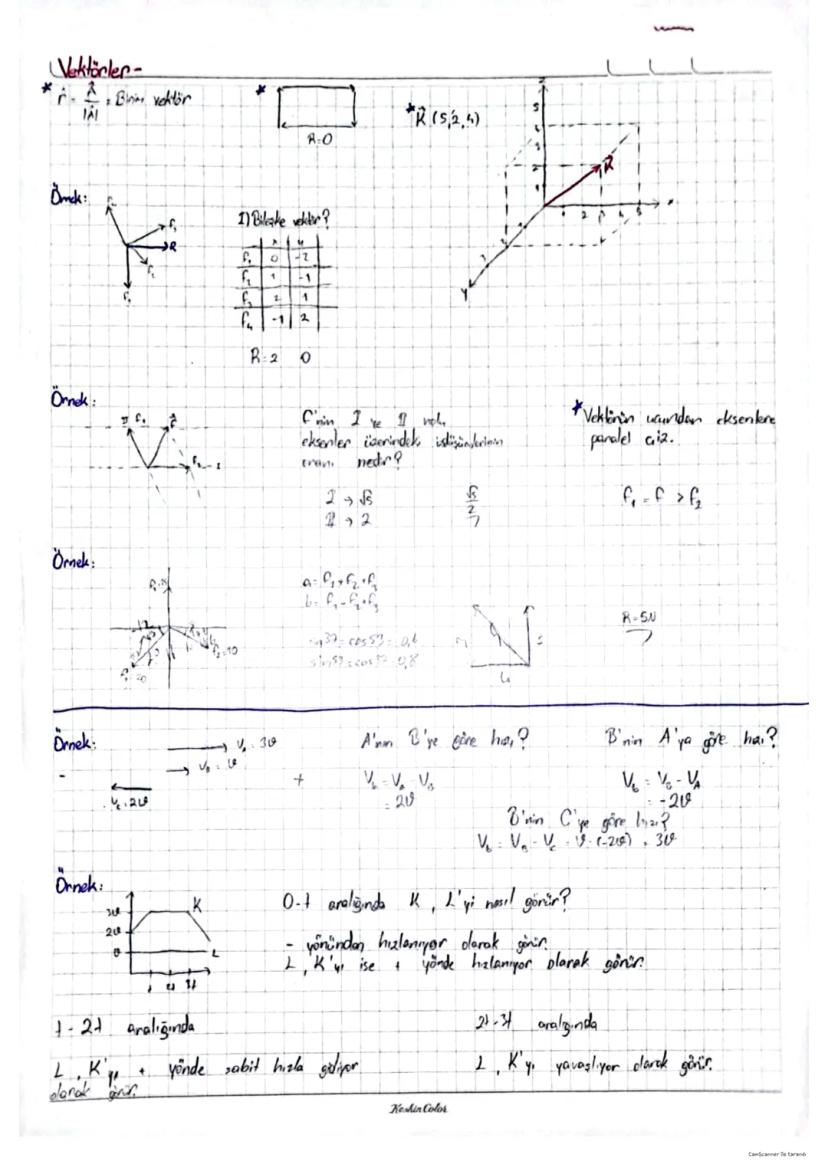 Vektörler-
* r̂ = A⃗ / |A⃗| = Birim vektör
*
R=0
* K⃗ (5,2,4)
Örnek:
1) Bileşke vektör?
x y
F₁ 0 -2
F₂ 1 -1
F₃ 2 1
F₄ -1 2
R=2 0
Örnek:
F'nin I ve II nolu
eksenler üzerindeki izdüşümlerinin
oranı nedir?
I → √5
II → 2
√5
2
* Vektörün ucundan eksenlere
paralel çiz.
F₁ = F > F₂
Örnek:
a = F₁+F₂+F₃
b = F₁-F₂+F₃
sin37=cos53=0,6
sin53=cos37=0,8
R=5N
Örnek:
- +
Vₐ=3ϑ
V_B=ϑ
V_C=2ϑ
A'nın B'ye göre hızı?
V_b = V_A - V_B
= 2ϑ
B'nin A'ya göre hızı?
V_b = V_B - V_A
= -2ϑ
B'nin C'ye göre hızı?
V_b = V_B - V_C = ϑ-(-2ϑ) = 3ϑ
Örnek:
3ϑ
2ϑ
ϑ
K
L
t 2t 3t
0-t aralığında K, L'yi nasıl görür?
- yönünden hızlanıyor olarak görür.
L, K'yı ise + yönde hızlanıyor olarak görür.
t - 2t aralığında
L, K'yı + yönde sabit hızla gidiyor
olarak görür.
2t-3t aralığında
L, K'yı yavaşlıyor olarak görür.
Keskin Color
CamScanner ile tarandı